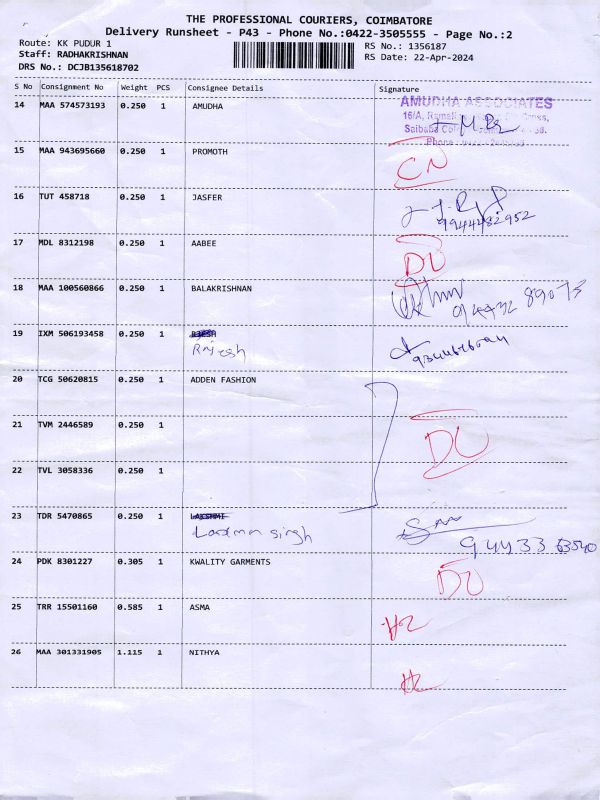 THE PROFESSIONAL COURIERS, COIMBATORE
Delivery Runsheet - P43 - Phone No.:0422-3505555 - Page No.:2
Route: KK PUDUR 1
RS No.: 1356187
Staff: RADHAKRISHNAN
RS Date: 22-Apr-2024
DRS No.: DCJB135618702
S No Consignment No Weight PCS Consignee Details Signature
14 MAA 574573193 0.250 1 AMUDHA
AMUDHA ASSOCIATES
16/A,
Saibaba
Phone
15 MAA 943695660 0.250 1 PROMOTH CN
16 TUT 458718 0.250 1 JASFER
9944482952
17 MDL 8312198 0.250 1 AABEE DU
18 MAA 100560866 0.250 1 BALAKRISHNAN
89073
19 IXM 506193458 0.250 1
Rajesh
20 TCG 50620815 0.250 1 ADDEN FASHION
21 TVM 2446589 0.250 1 DU
22 TVL 3058336 0.250 1
23 TDR 5470865 0.250 1 LAKSHMI
singh
94433 63540
24 PDK 8301227 0.305 1 KWALITY GARMENTS DU
25 TRR 15501160 0.585 1 ASMA
26 MAA 301331905 1.115 1 NITHYA